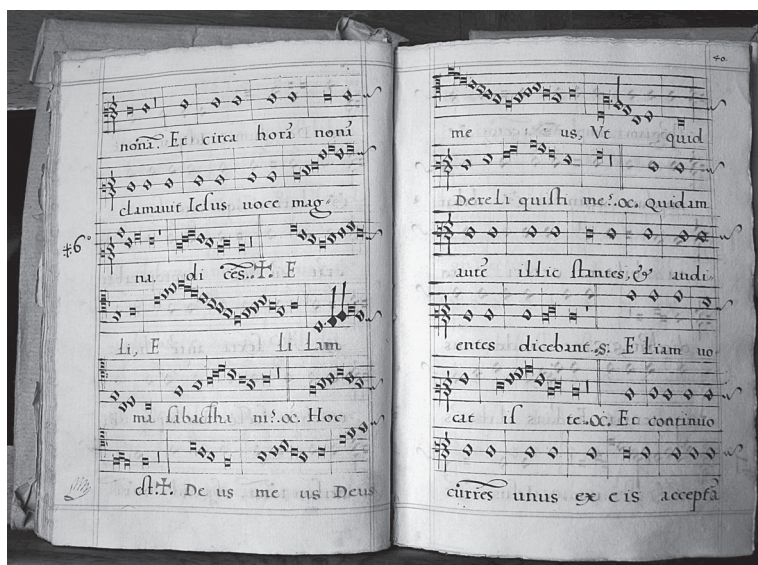 nonã. Et circa horã nonã
clamauit Iesus uoce mag-
‡6°
na, di cẽs. ✝. E
li, E li Lam
ma sabactha ni?.∝. Hoc
est.✝. De us me us Deus
40.
me us, Vt quid
Dereli quisti me?.∝. Quidam
autẽ illic stantes, & audi-
entes dicebant.s. Eliam uo-
cat is te.∝. Et continuo
currẽs unus ex eis acceptã